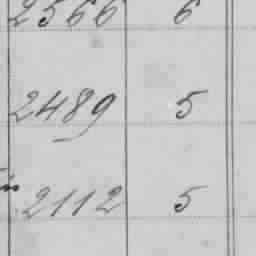 2566 6
2489 5
2112 5